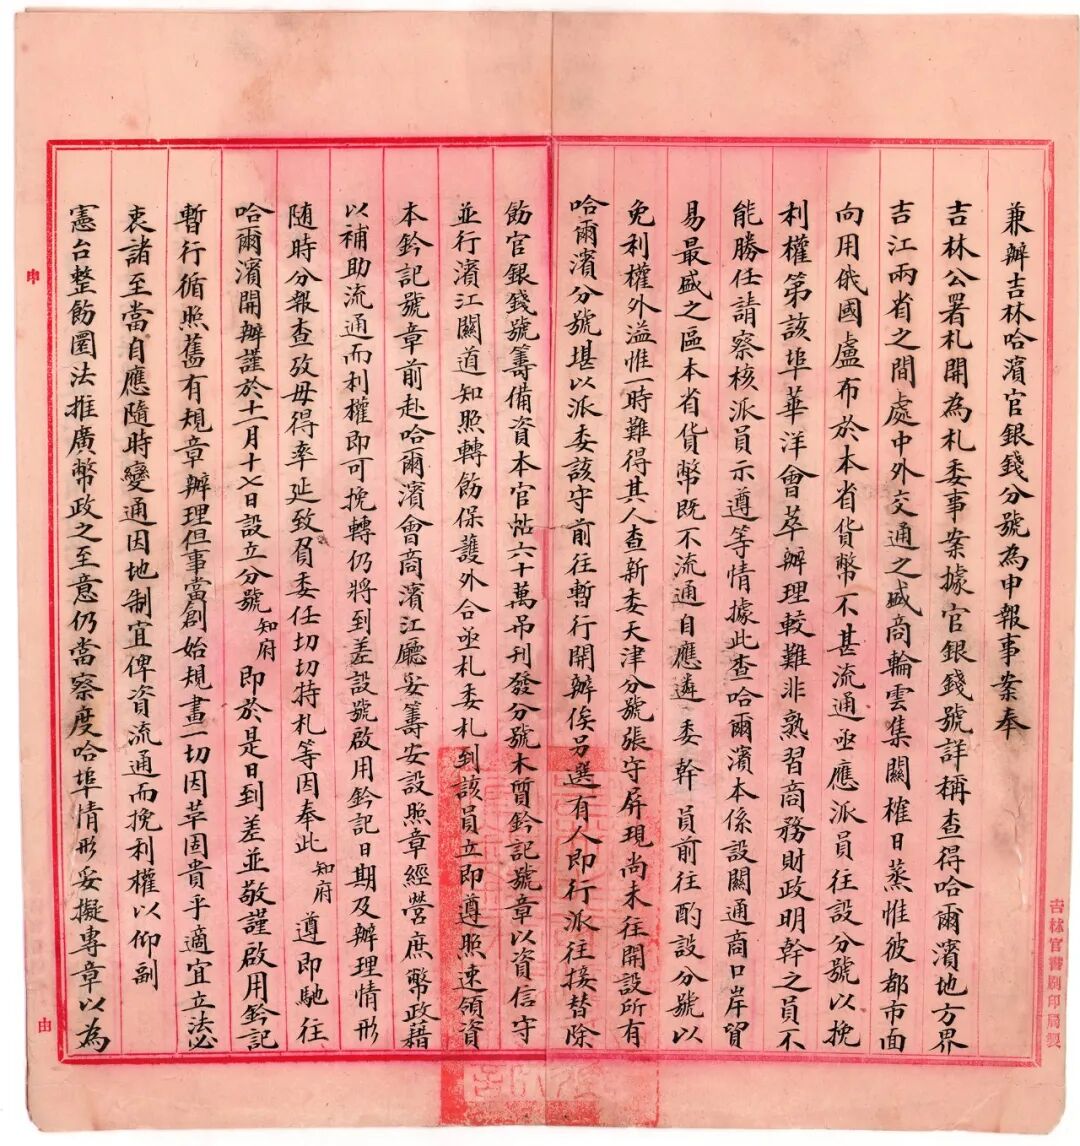 兼辦吉林哈濱官銀錢分號為申報事案奉
吉林公署札開為札委事案據官銀錢號詳稱查得哈爾濱地方界
吉江兩省之間處中外交通之盛商輪雲集關榷日蒸惟彼都市面
向用俄國盧布於本省貨幣不甚流通亟應派員往設分號以挽
利權第該埠華洋會萃辦理較難非熟習商務財政明幹之員不
能勝任請察核派員示遵等情據此查哈爾濱本係設關通商口岸貿
易最盛之區本省貨幣既不流通自應遴委幹員前往酌設分號以
免利權外溢惟一時難得其人查新委天津分號張守屏現尚未往開設所有
哈爾濱分號堪以派委該守前往暫行開辦俟另選有人即行派往接替除
飭官銀錢號籌備資本官帖六十萬吊刊發分號木質鈐記號章以資信守
並行濱江關道知照轉飭保護外合亟札委札到該員立即遵照速領資
本鈐記號章前赴哈爾濱會商濱江廳妥籌安設照章經營庶幣政藉
以補助流通而利權即可挽轉仍將到差設號啟用鈐記日期及辦理情形
隨時分報查攷毋得率延致負委任切切特札等因奉此知府遵即馳往
哈爾濱開辦謹於十一月十七日設立分號知府即於是日到差並敬謹啟用鈐記
暫行循照舊有規章辦理但事當創始規畫一切因革固貴乎適宜立法必
衷諸至當自應隨時變通因地制宜俾資流通而挽利權以仰副
憲台整飭圜法推廣幣政之至意仍當察度哈埠情形妥擬專章以為
申
由
吉林官書刷印局製